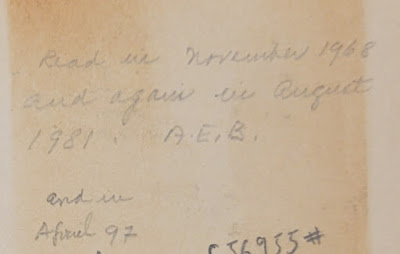 Read in November 1968
and again in August
1981. A.E.B.
and in
April 97
C56955#